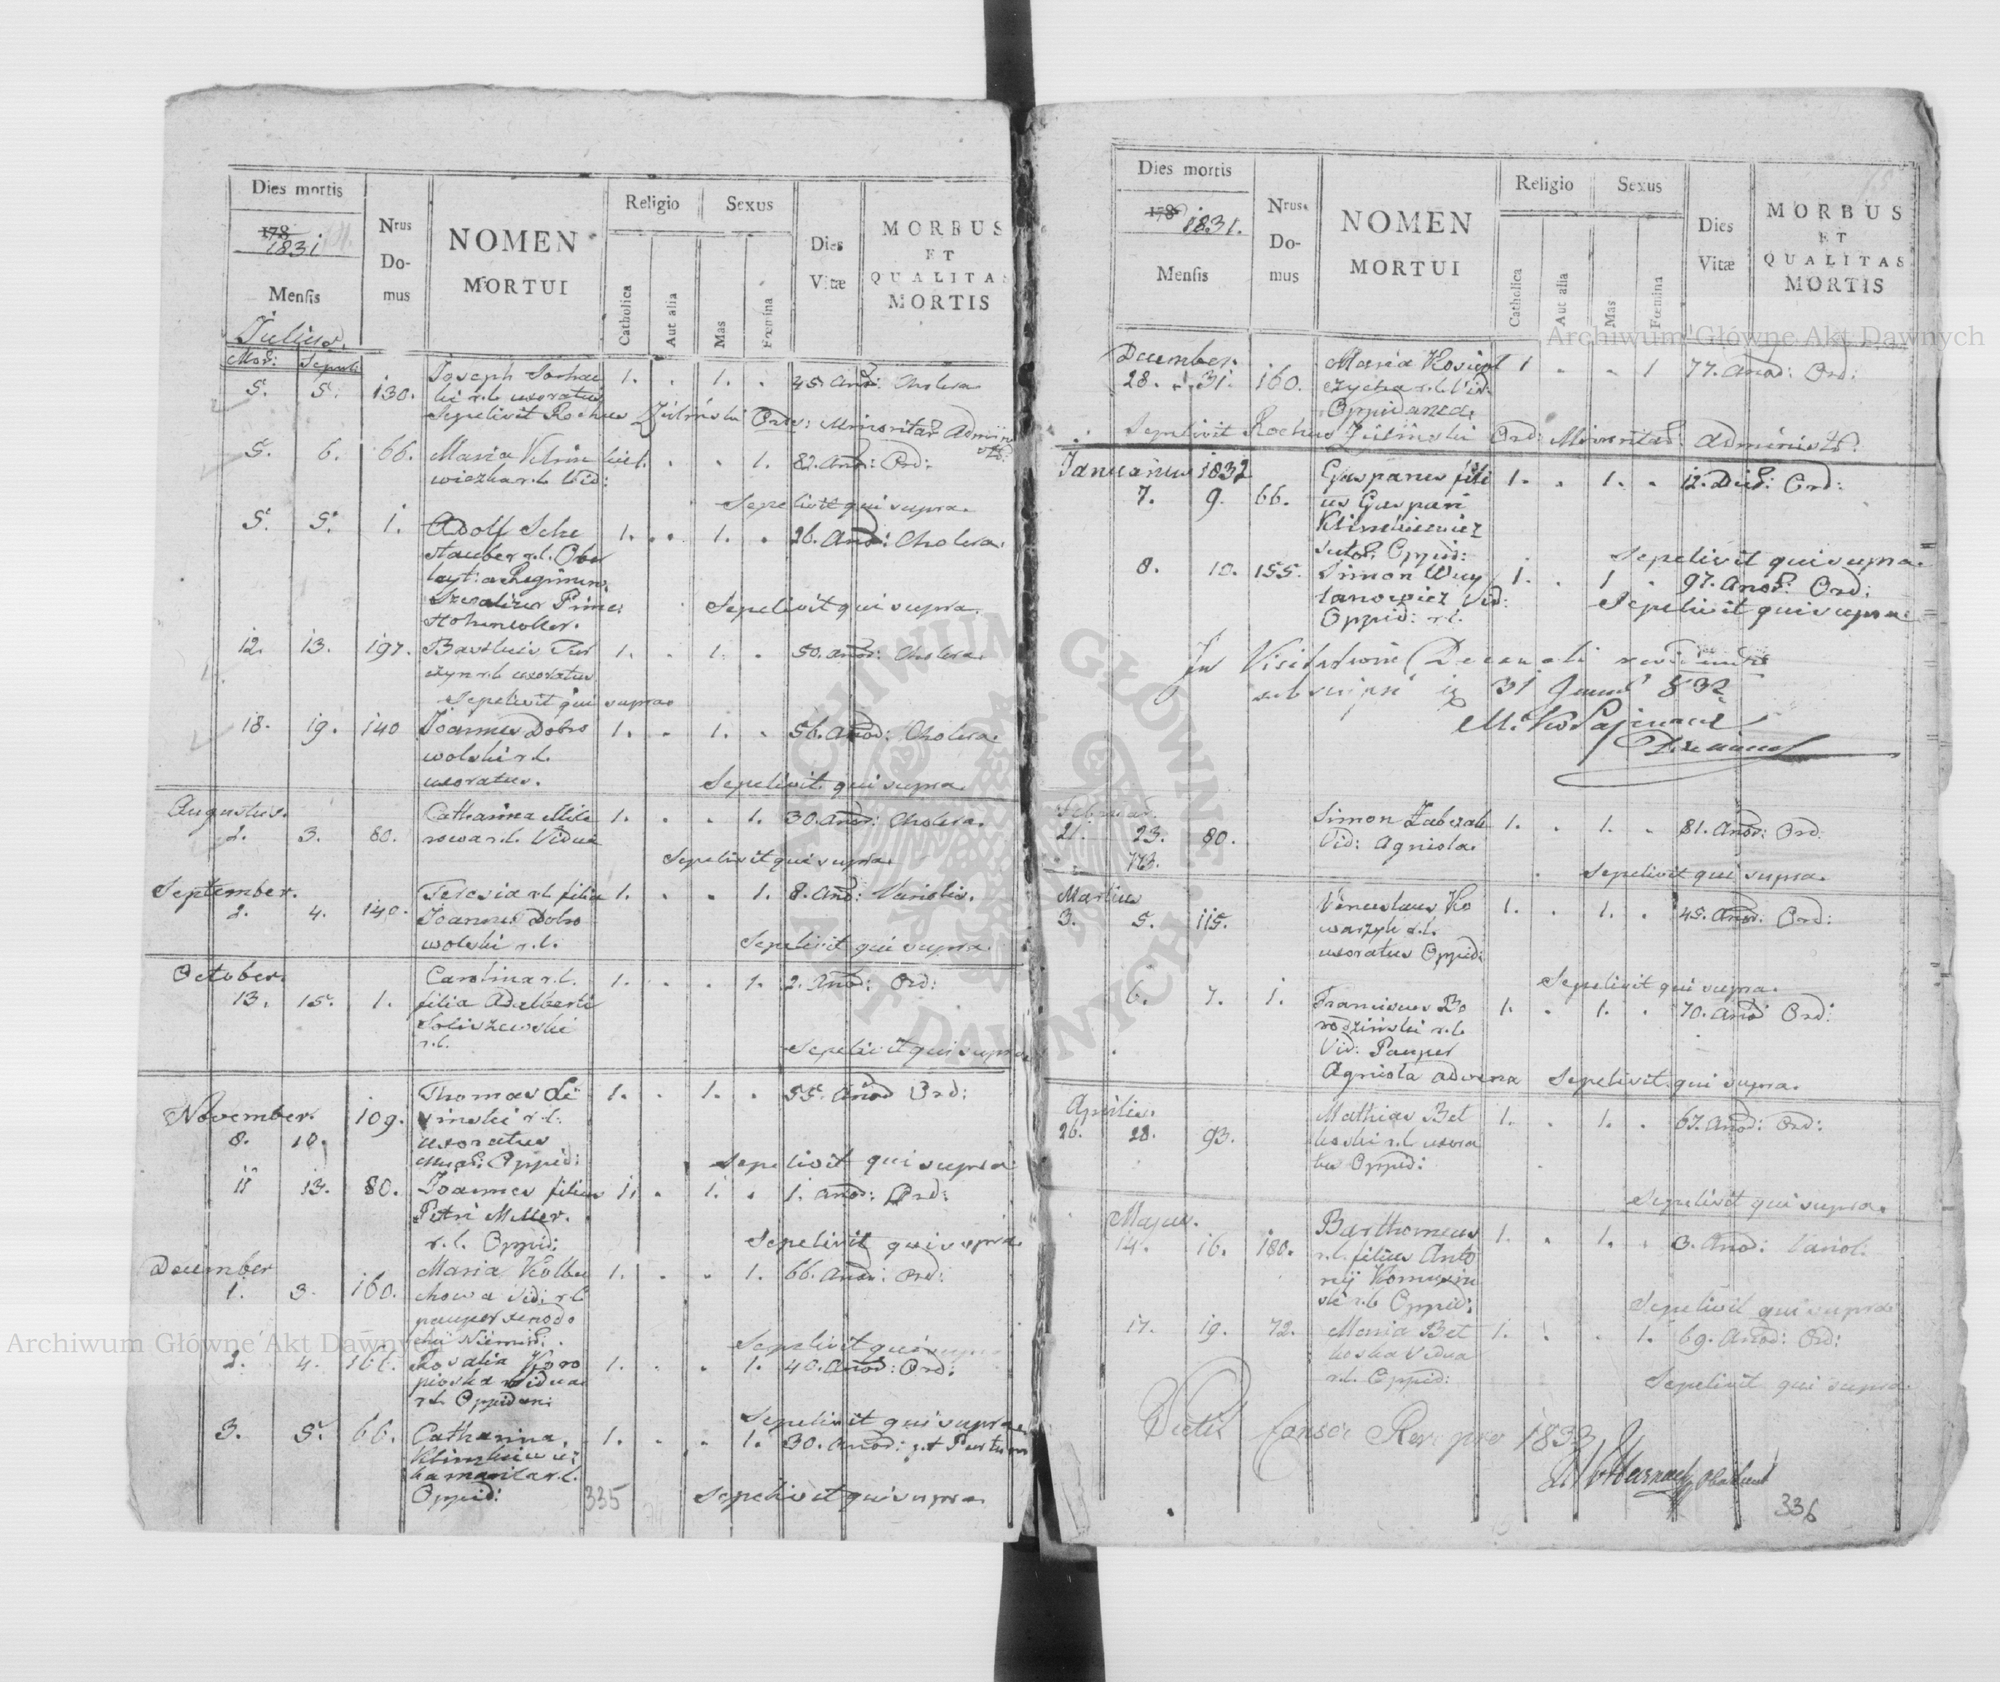 Dies mortis
1831
Mensis
Nrus
Do-
mus
NOMEN
MORTUI
Religio
Sexus
Catholica
Aut alia
Mas
Fœmina
Dies
Vitæ
MORBUS
ET
QUALITAS
MORTIS
Julius.
Mor: Sepul:
5. 5. 130. Joseph
r.l. uxoratus 1. . 1. . 45. Anor: Cholera
Sepelivit Rochus Ord: Minoritar Admin
5. 6. 66. Maria 1. . . 1. 82. Anor: Ord:
r.l. Vid:
Sepelivit qui supra.
5. 5. 1. Adolf Sche 1. . 1. . 26. Anor: Cholera.
stauber r.l. Ober
layt: a Regimin
Princ:
Hohenzoller.
Sepelivit qui supra.
12. 13. 197. Basilius Tur 1. . 1. . 50. Anor: Cholera.
czyn r.l. uxoratus
Sepelivit qui supra.
18. 19. 140 Joannes Dobro 1. . 1. . 56. Anor: Cholera.
wolski r.l.
uxoratus.
Sepelivit qui supra.
Augustus.
2. 3. 80. Catharina 1. . . 1. 30. Anor: Cholera.
r.l. Vidua
Sepelivit qui supra.
September.
2. 4. 140. Teresia r.l. filia 1. . . 1. 8. Anor: Variolis.
Joannis Dobro
wolski r.l.
Sepelivit qui supra.
October.
13. 15. 1. Carolina r.l. 1. . . 1. 2. Anor: Ord:
filia Adalberti
Soliszewski
r.l.
Sepelivit qui supra
November.
8. 10. 109. Thomas Li 1. . 1. . 55. Anor Ord:
vinski r.l.
uxoratus
Oppid:
Sepelivit qui supra.
11 13. 80. Joannes filius 1. . 1. . 1. Anor: Ord:
Petri Miller.
r.l. Oppid:
Sepelivit qui supra.
December
1. 3. 160. Maria Kolbu 1. . . 1. 66. Anor: Ord:
chowa Vid: r.l.
pauper
Sepelivit qui supra
2. 4. 166. Rosalia Koro 1. . . 1. 40. Anor: Ord:
piowska vidua
r.l. Oppidan:
Sepelivit qui supra.
3. 5. 66. Catharina 1. . . 1. 30. Anor: Partum
marita r.l.
Oppid:
Sepelivit qui supra.
335
Dies mortis
1831.
Mensis
Nrus
Do-
mus
NOMEN
MORTUI
Religio
Sexus
Catholica
Aut alia
Mas
Fœmina
Dies
Vitæ
MORBUS
ET
QUALITAS
MORTIS
December.
28. 31. 160. Maria 1 . . 1 77. Anor: Ord:
r.l. Vid:
Oppidanea
Sepelivit Rochus Ord: Minoritar: Administr:
Januarius 1832
7. 9. 66. Gasparus fili 1. . 1. . 12. Dier: Ord:
us Gaspari
Klimkiewicz
Oppid:
Sepelivit qui supra.
8. 10. 155. Simon Wuy 1. . 1 . 97. Anor: Ord:
tanowicz Vid:
Oppid: r.l.
Sepelivit qui supra
In Visitatione Decanali
subscripsi 31 832
Decanus
Februar.
21. 23. 80. Simon 1. . 1. . 81. Anor: Ord
Vid: Agricola.
Sepelivit qui supra.
Martius
3. 5. 115. Venceslaus Ko 1. . 1. . 45. Anor: Ord:
warzyk r.l.
uxoratus Oppid:
Sepelivit qui supra.
6. 7. 1. Franciscus Bo 1. . 1. . 70. Anor Ord:
rodziński r.l.
Vid: Pauper
Agricola advena Sepelivit qui supra.
Aprilis.
26. 28. 93. Mathias Bet 1. . 1. . 67. Anor: Ord:
koski r.l. uxora
tus Oppid:
Sepelivit qui supra.
Majus.
14. 16. 180. Barthomeus 1. . 1. . 3. Anor: Variol:
r.l. filius Anto
nij
r.l. Oppid:
Sepelivit qui supra
17. 19. 72. Maria Bet 1. . . 1. 69. Anor: Ord:
koska Vidua
r.l. Oppid:
Sepelivit qui supra.
1833
336
Archiwum Główne Akt Dawnych
Archiwum Główne Akt Dawnych
ARCHIWUM GŁÓWNE AKT DAWNYCH